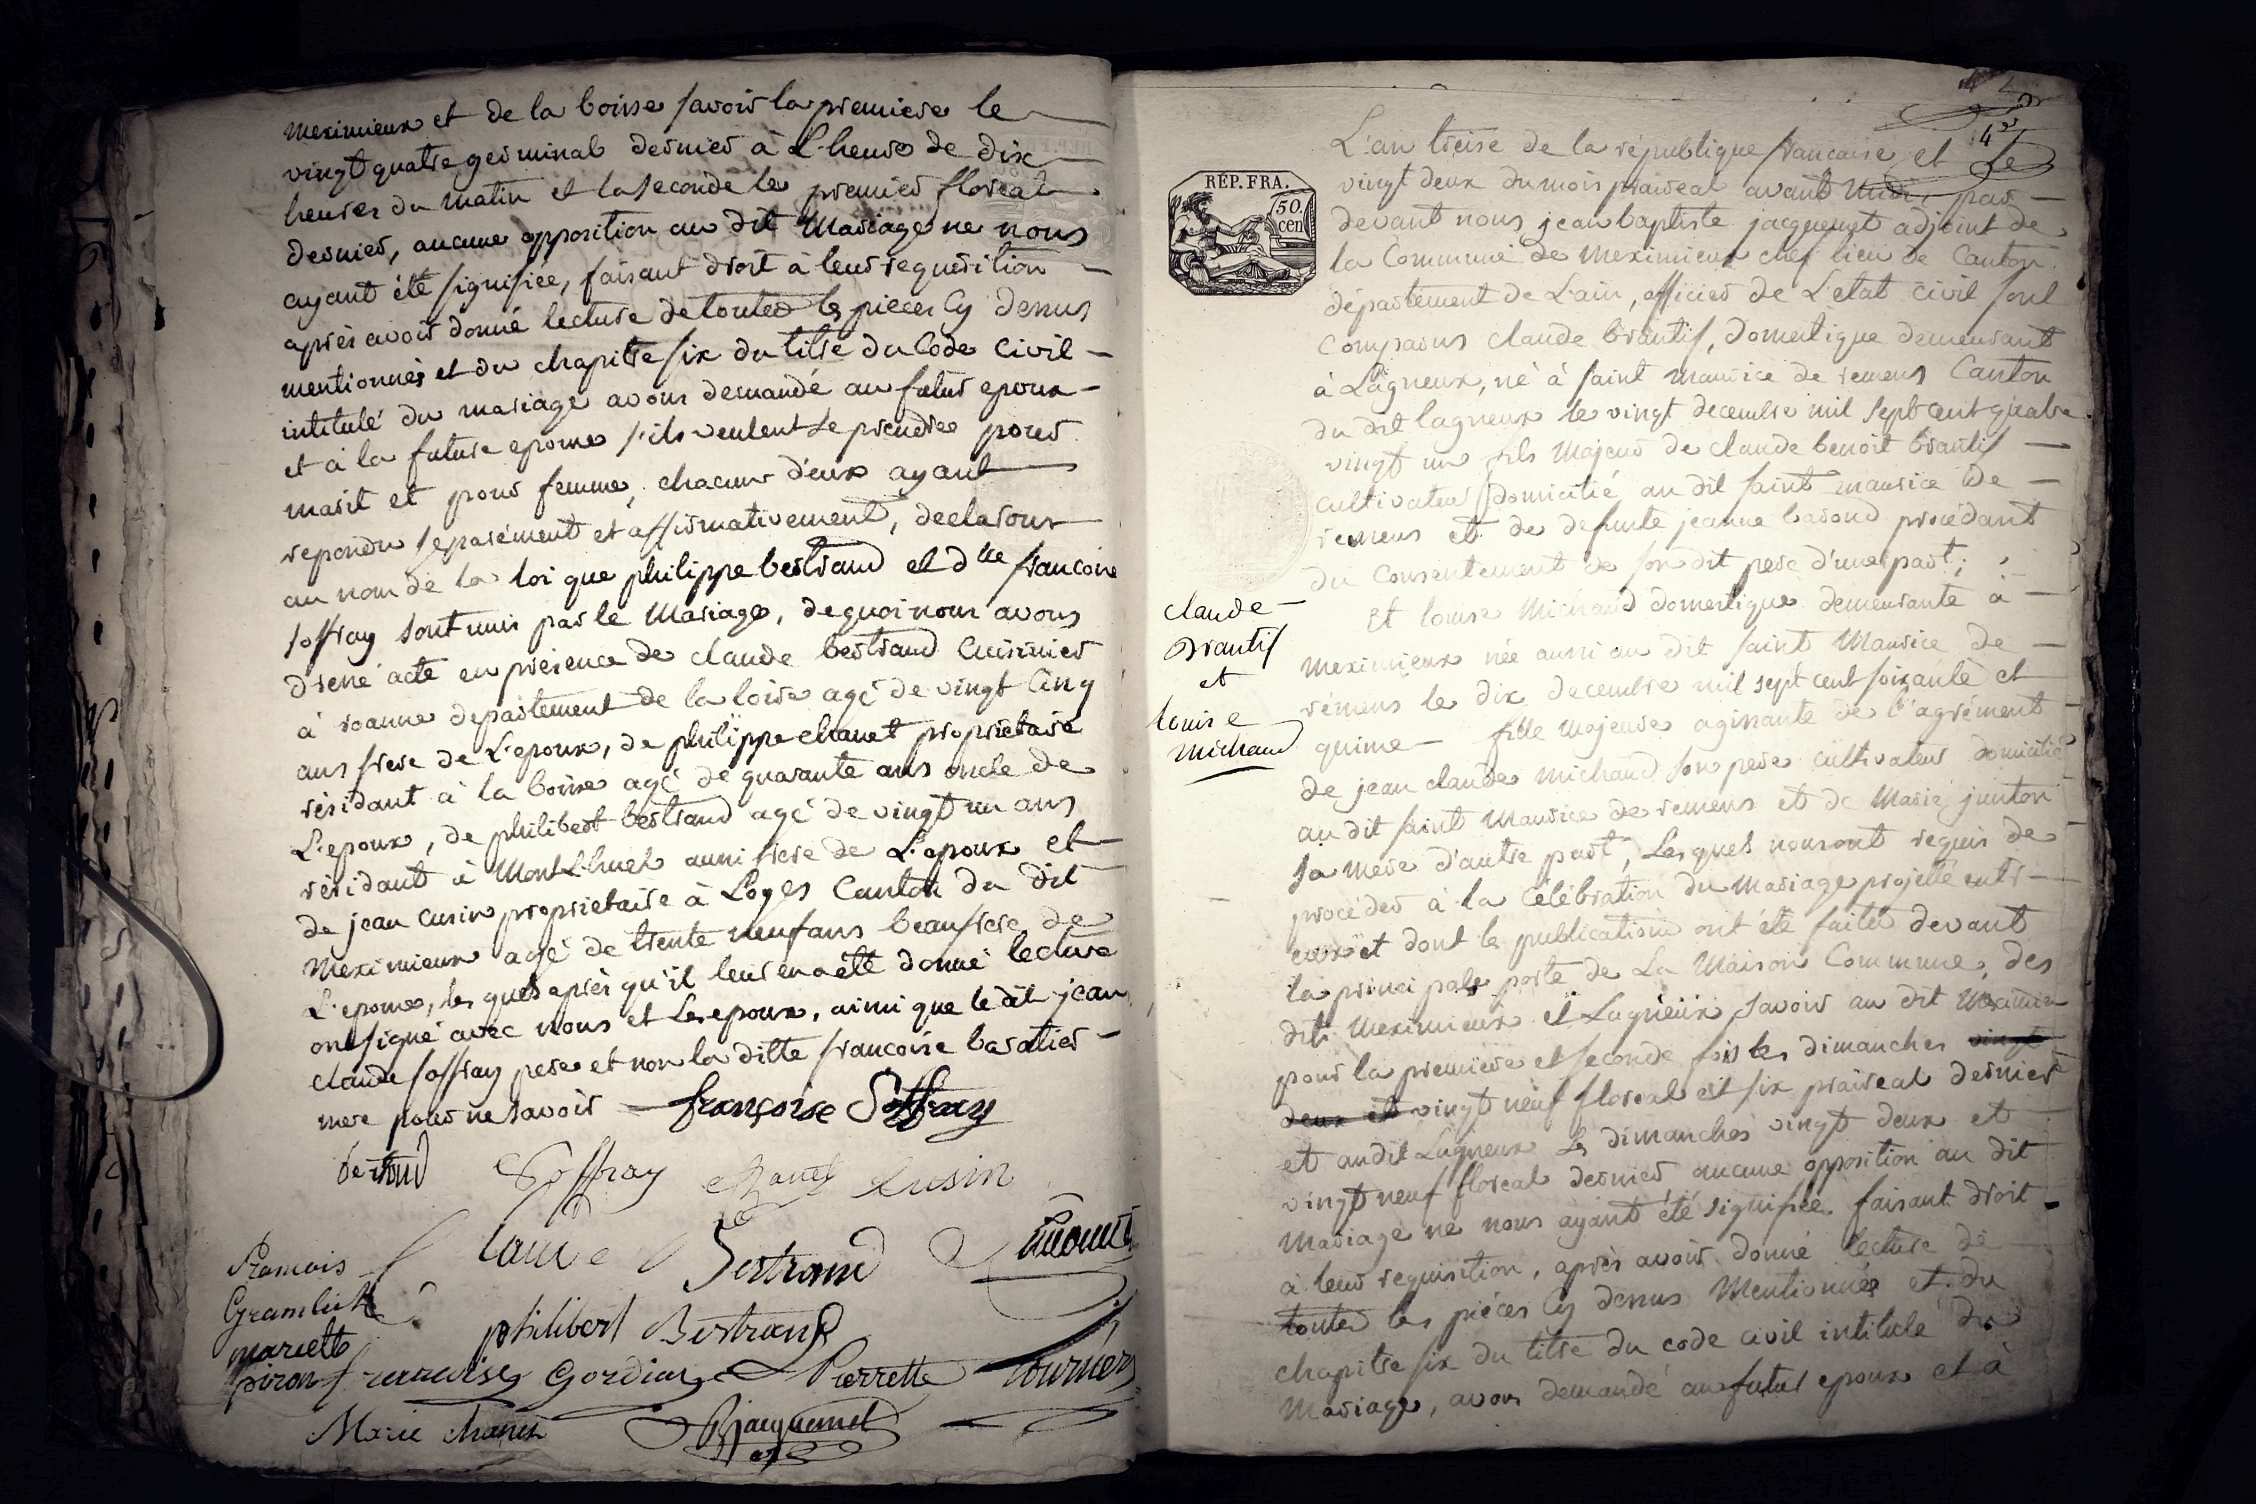 meximieux et de la boisse savoir la premiere le
vingt quatre germinal dernier à L'heure de dix
heures du matin et la seconde le premier floreal
dernier, aucune opposition au dit Mariage ne nous
ayant été signifiée, faisant droit à leur requisition
après avoir donné lecture de toutes les pieces cy dessus
mentionnées et du chapitre six du titre du Code Civil
intitulé du mariage avons demandé au futur epoux
et à la future epouse s'ils veulent se prendre pour
marit et pour femme, chacun d'eux ayant
repondu separément et affirmativement, declarons
au nom de la loi que philippe bertrand et dlle francoise
soffray sont unis par le Mariage, de quoi nous avons
dressé acte en présence de claude bertrand Cuisinier
à roanne departement de la loire agé de vingt Cinq
ans frere de L'epoux, de philippe chanet propriétaire
résidant à la boisse agé de quarante ans oncle de
L'epoux, de philibert bertrand agé de vingt un ans
résidant à Montluel aussi frere de L'epoux et
de jean cusin proprietaire à Loyes Canton du dit
Meximieux agé de trente neuf ans beaufrere de
L'epouse, les quels après qu'il leur en a été donné lecture
ont signé avec nous et Les epoux, ainsi que le dit jean
claude soffray pere et non la ditte francoise baratier
mere pour ne savoir françoise Soffray
bertrand Soffray chanet Cusin
Claude Bertrand
françois
philibert Bertrand
mariette
piron francoise Gordian Pierrette tournier
Marie chanet Jacquemet
REP. FRA.
50
cen
4
L'an treise de la république francaise et Le
vingt deux du mois prairéal avant Midi, par
devant nous jean baptiste jacquemet adjoint de
la Commune de meximieux chef lieu de Canton
département de L'ain, officier de L'etat Civil sont
Comparus claude brantif, domestique demeurant
à Lagneux, né à saint maurice de remens Canton
du dit lagneux le vingt decembre mil sept cent quatre
vingt un fils Majeur de claude benoit brantif
cultivateur domicilié au dit saint maurice de
remens et de defunte jeanne barond procédant
du Consentement de son dit pere d'une part;
Et louise Michaud domestique demeurante à
meximieux née aussi au dit saint Maurice de
rémens le dix decembre mil sept cent soixante et
quinse fille majeure agissante de l'agrément
de jean claude michaud son pere cultivateur domicilié
au dit saint Maurice de remens et de Marie jenton
sa mere d'autre part, Lesquels nous ont requis de
procéder à la Célébration du Mariage projetté entr
eux et dont les publications ont été faites devant
la principale porte de La Maison Commune, des
dits Meximieux et Lagnieux savoir au dit Meximieux
pour la premiere et seconde fois les dimanches vingt
deux et vingt neuf floreal et six prairéal dernier
et au dit Lagneux Les dimanches vingt deux et
vingt neuf floreal dernier aucune opposition au dit
Mariage ne nous ayant été signifiée. faisant droit
à leur requisition, après avoir donné lecture de
toutes les pièces cy dessus Mentionnées et du
chapitre six du titre du code civil intitulé du
Mariage, avons demandé au futur epoux et à
claude
brantif
et
louise
michaud